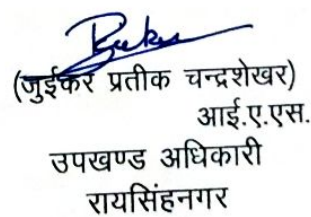 (जुईकर प्रतीक चन्द्रशेखर)
आई.ए.एस.
उपखण्ड अधिकारी
रायसिंहनगर